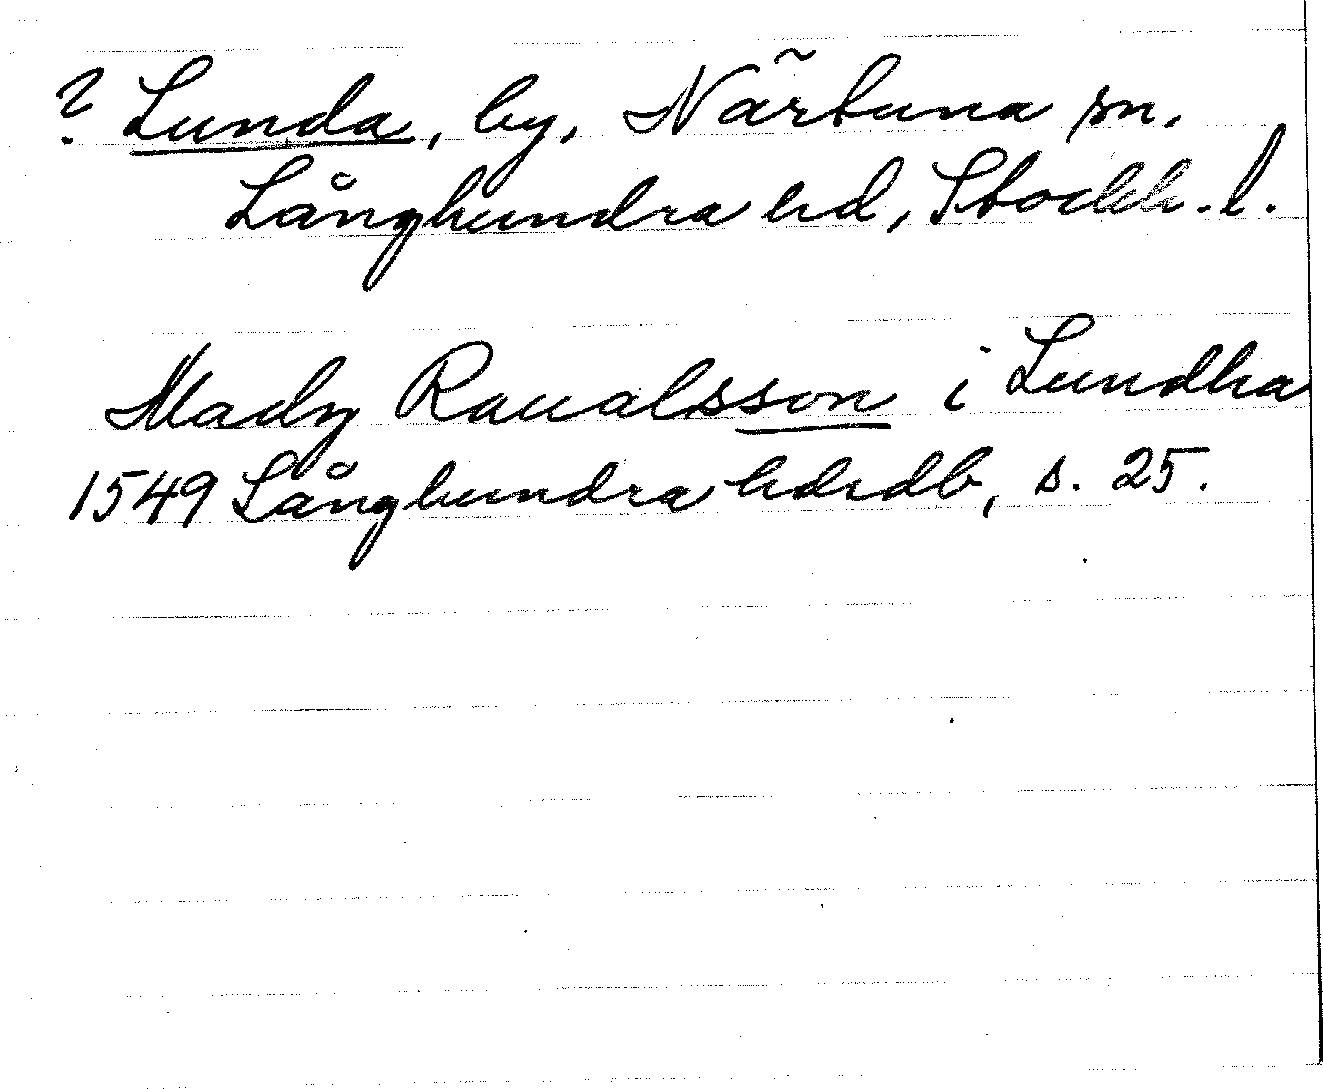 ? Lunda, by, Närtuna sn,
Långhundra hd, Stockh. l.
Madz Raualdsson i Lundha
1549 Långhundra hdrdb, s. 25.